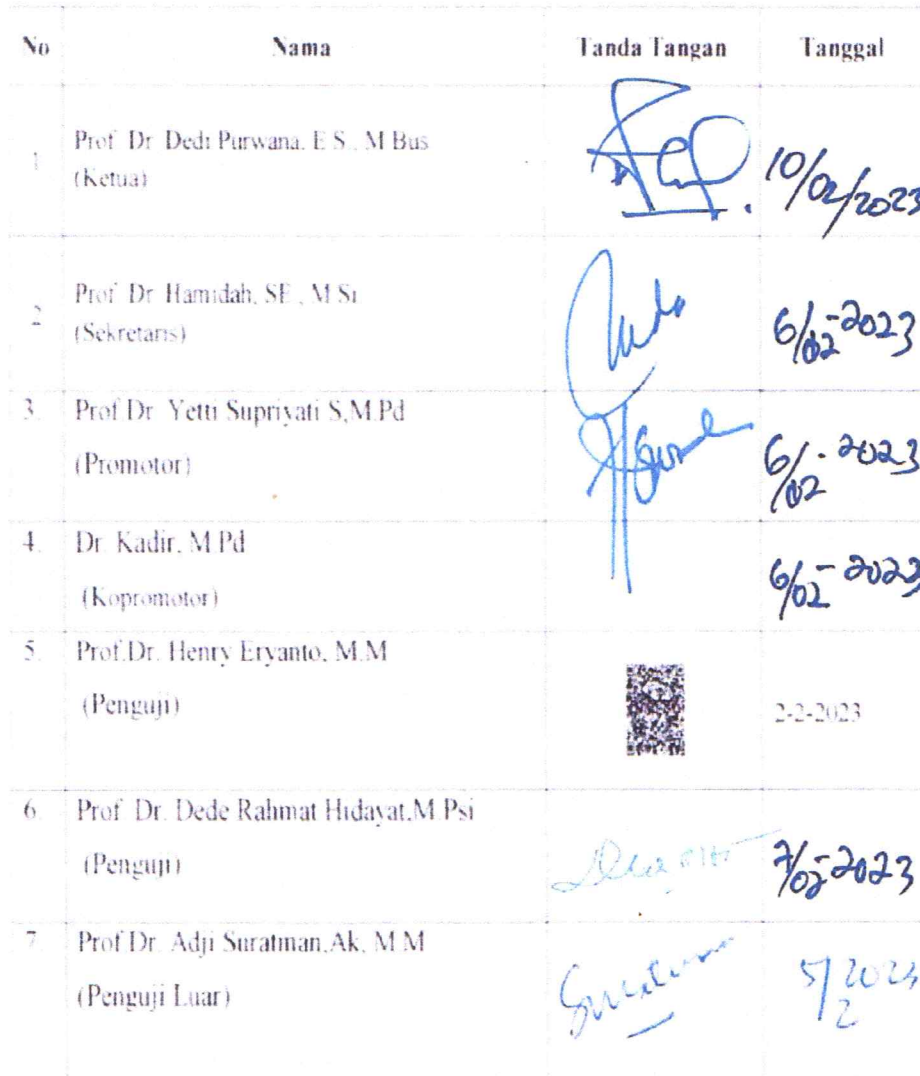 No Nama Tanda Tangan Tanggal
1. Prof Dr Dedi Purwana, E S., M Bus
(Ketua)
10/02/2023
2 Prof Dr Hamidah, SE., M Si
(Sekretaris)
6/02-2023
3. Prof.Dr Yetti Supriyati S,M.Pd
(Promotor)
6/02-2023
4. Dr. Kadir, M Pd
(Kopromotor)
6/02-2023
5. Prof.Dr. Henry Eryanto, M.M
(Penguji)
2-2-2023
6. Prof Dr. Dede Rahmat Hidayat,M Psi
(Penguji)
7/02-2023
7. Prof Dr. Adji Suratman,Ak, M M
(Penguji Luar)
Suratman
5/2 2023